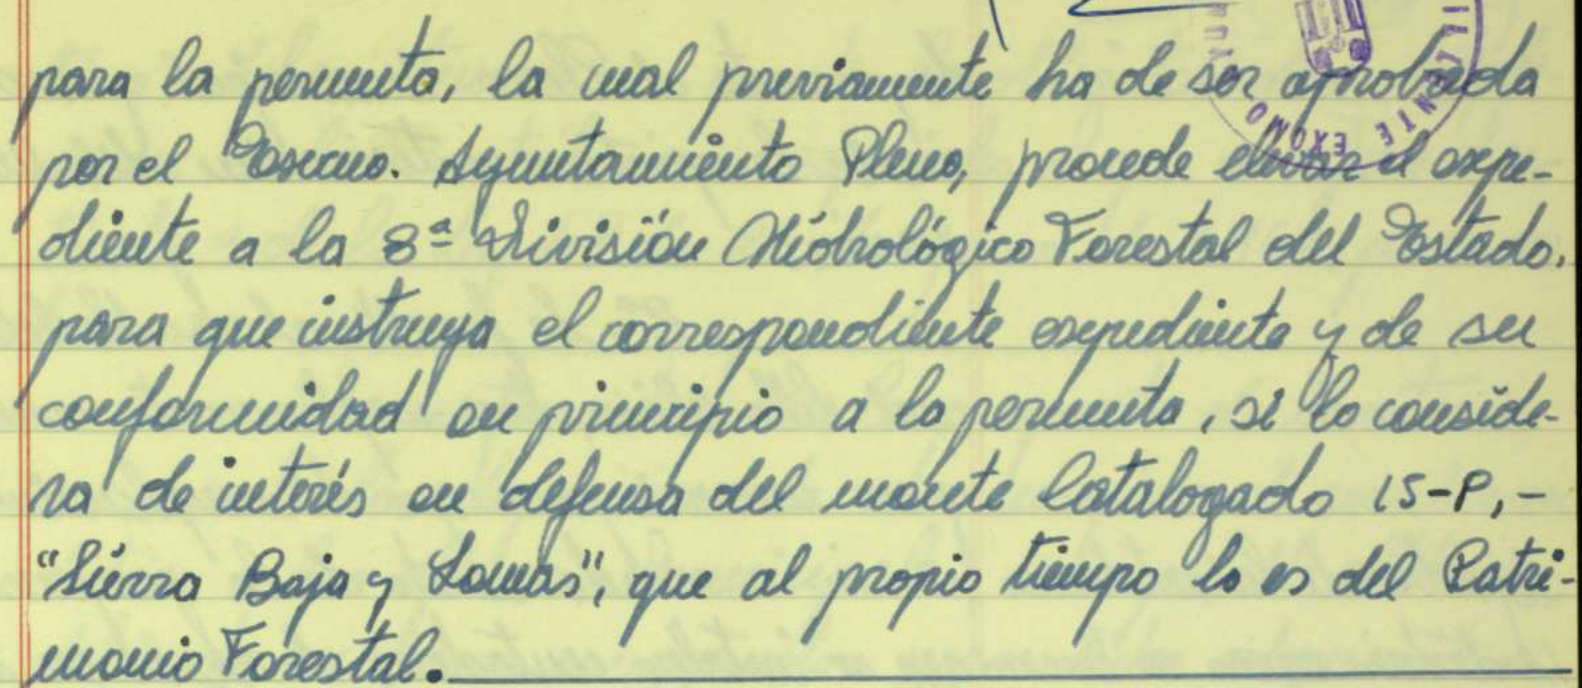 para la permuta, la cual previamente ha de ser aprobada
por el Excmo. Ayuntamiento Pleno, procede elevar el expe-
diente a la 8ª División Hidrológico Forestal del Estado,
para que instruya el correspondiente expediente y de su
conformidad en principio a la permuta, si lo conside-
ra de interés en defensa del monte Catalogado 15-P,-
"Sierra Baja y Lomas", que al propio tiempo lo es del Patri-
monio Forestal.